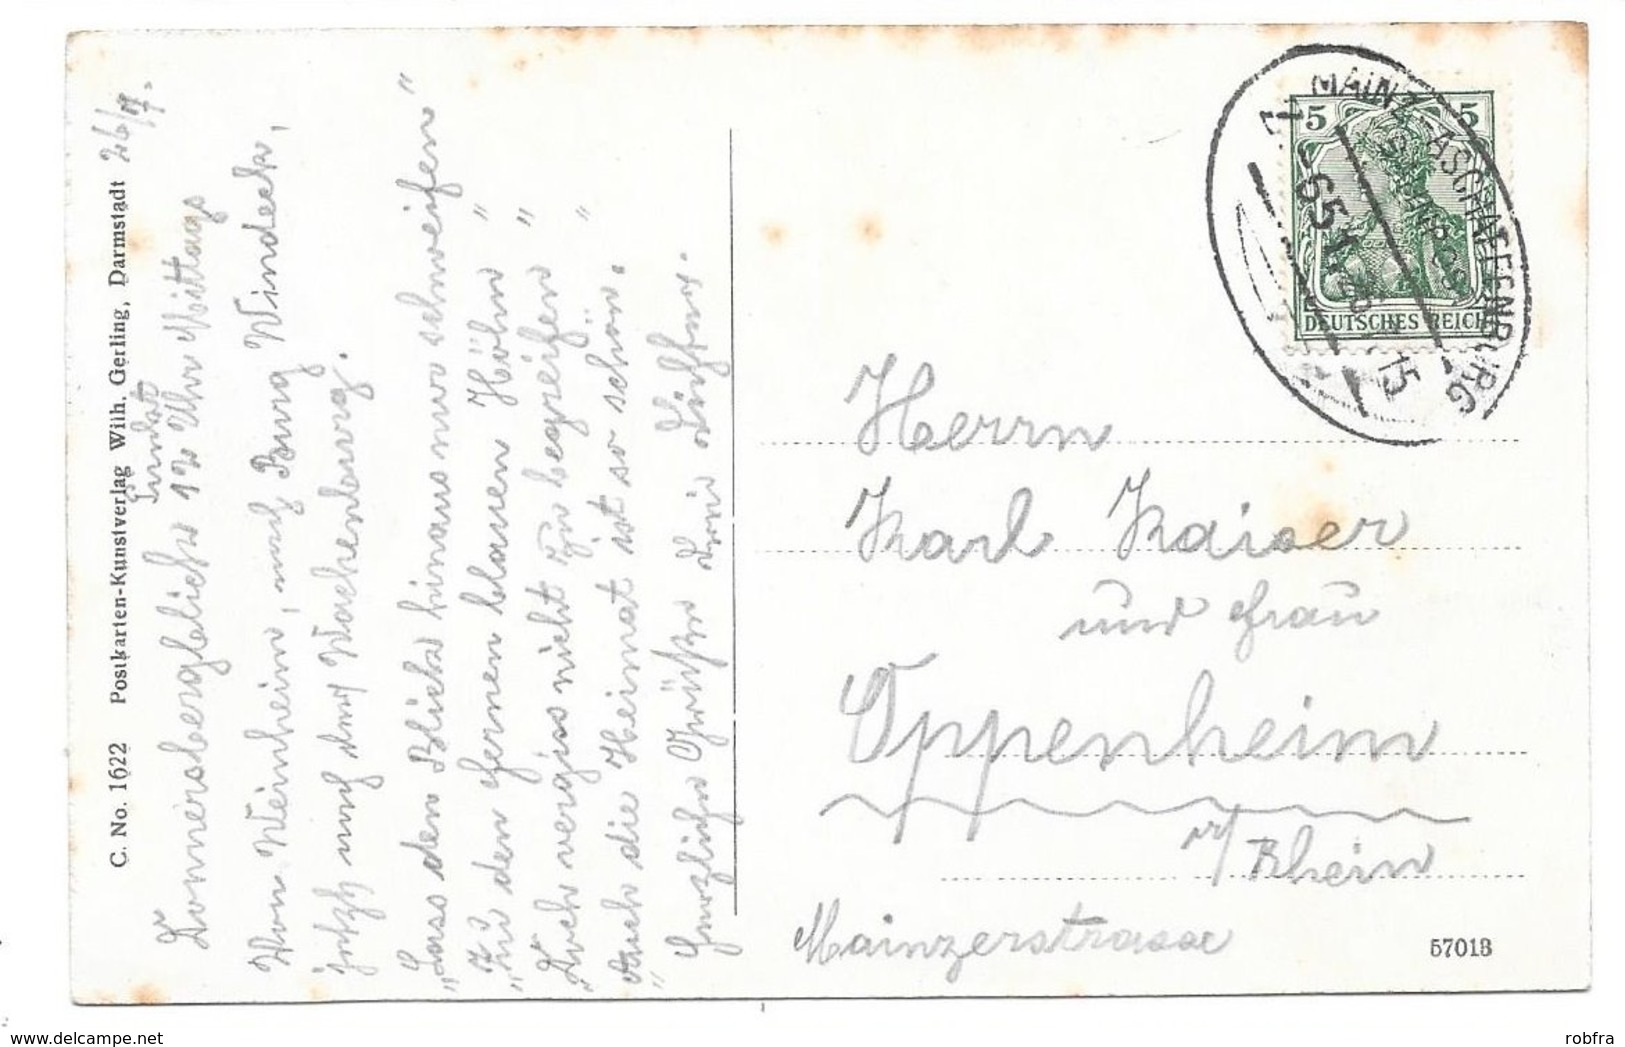 C. No. 1622 Postkarten-Kunstverlag Wilh. Gerling, Darmstadt
26/7.
12 Uhr Mittags
Von Weinheim, nach Burg Windeck,
jetzt nach der Wachenburg.
„Lass den Blick hinaus nur schweifen"
„Zu den fernen blauen Höhn"
„Doch vergiss nicht zu begreifen"
„Auch die Heimat ist so schön."
Herzliche Grüße
Herrn
Karl Kaiser
und Frau
Oppenheim
a/Rhein
Mainzerstrasse
57013
5 5
DEUTSCHES REICH
MAINZ-ASCHAFFENBURG
BAHNPOST
Z. 651
15
www.delcampe.net
robfra